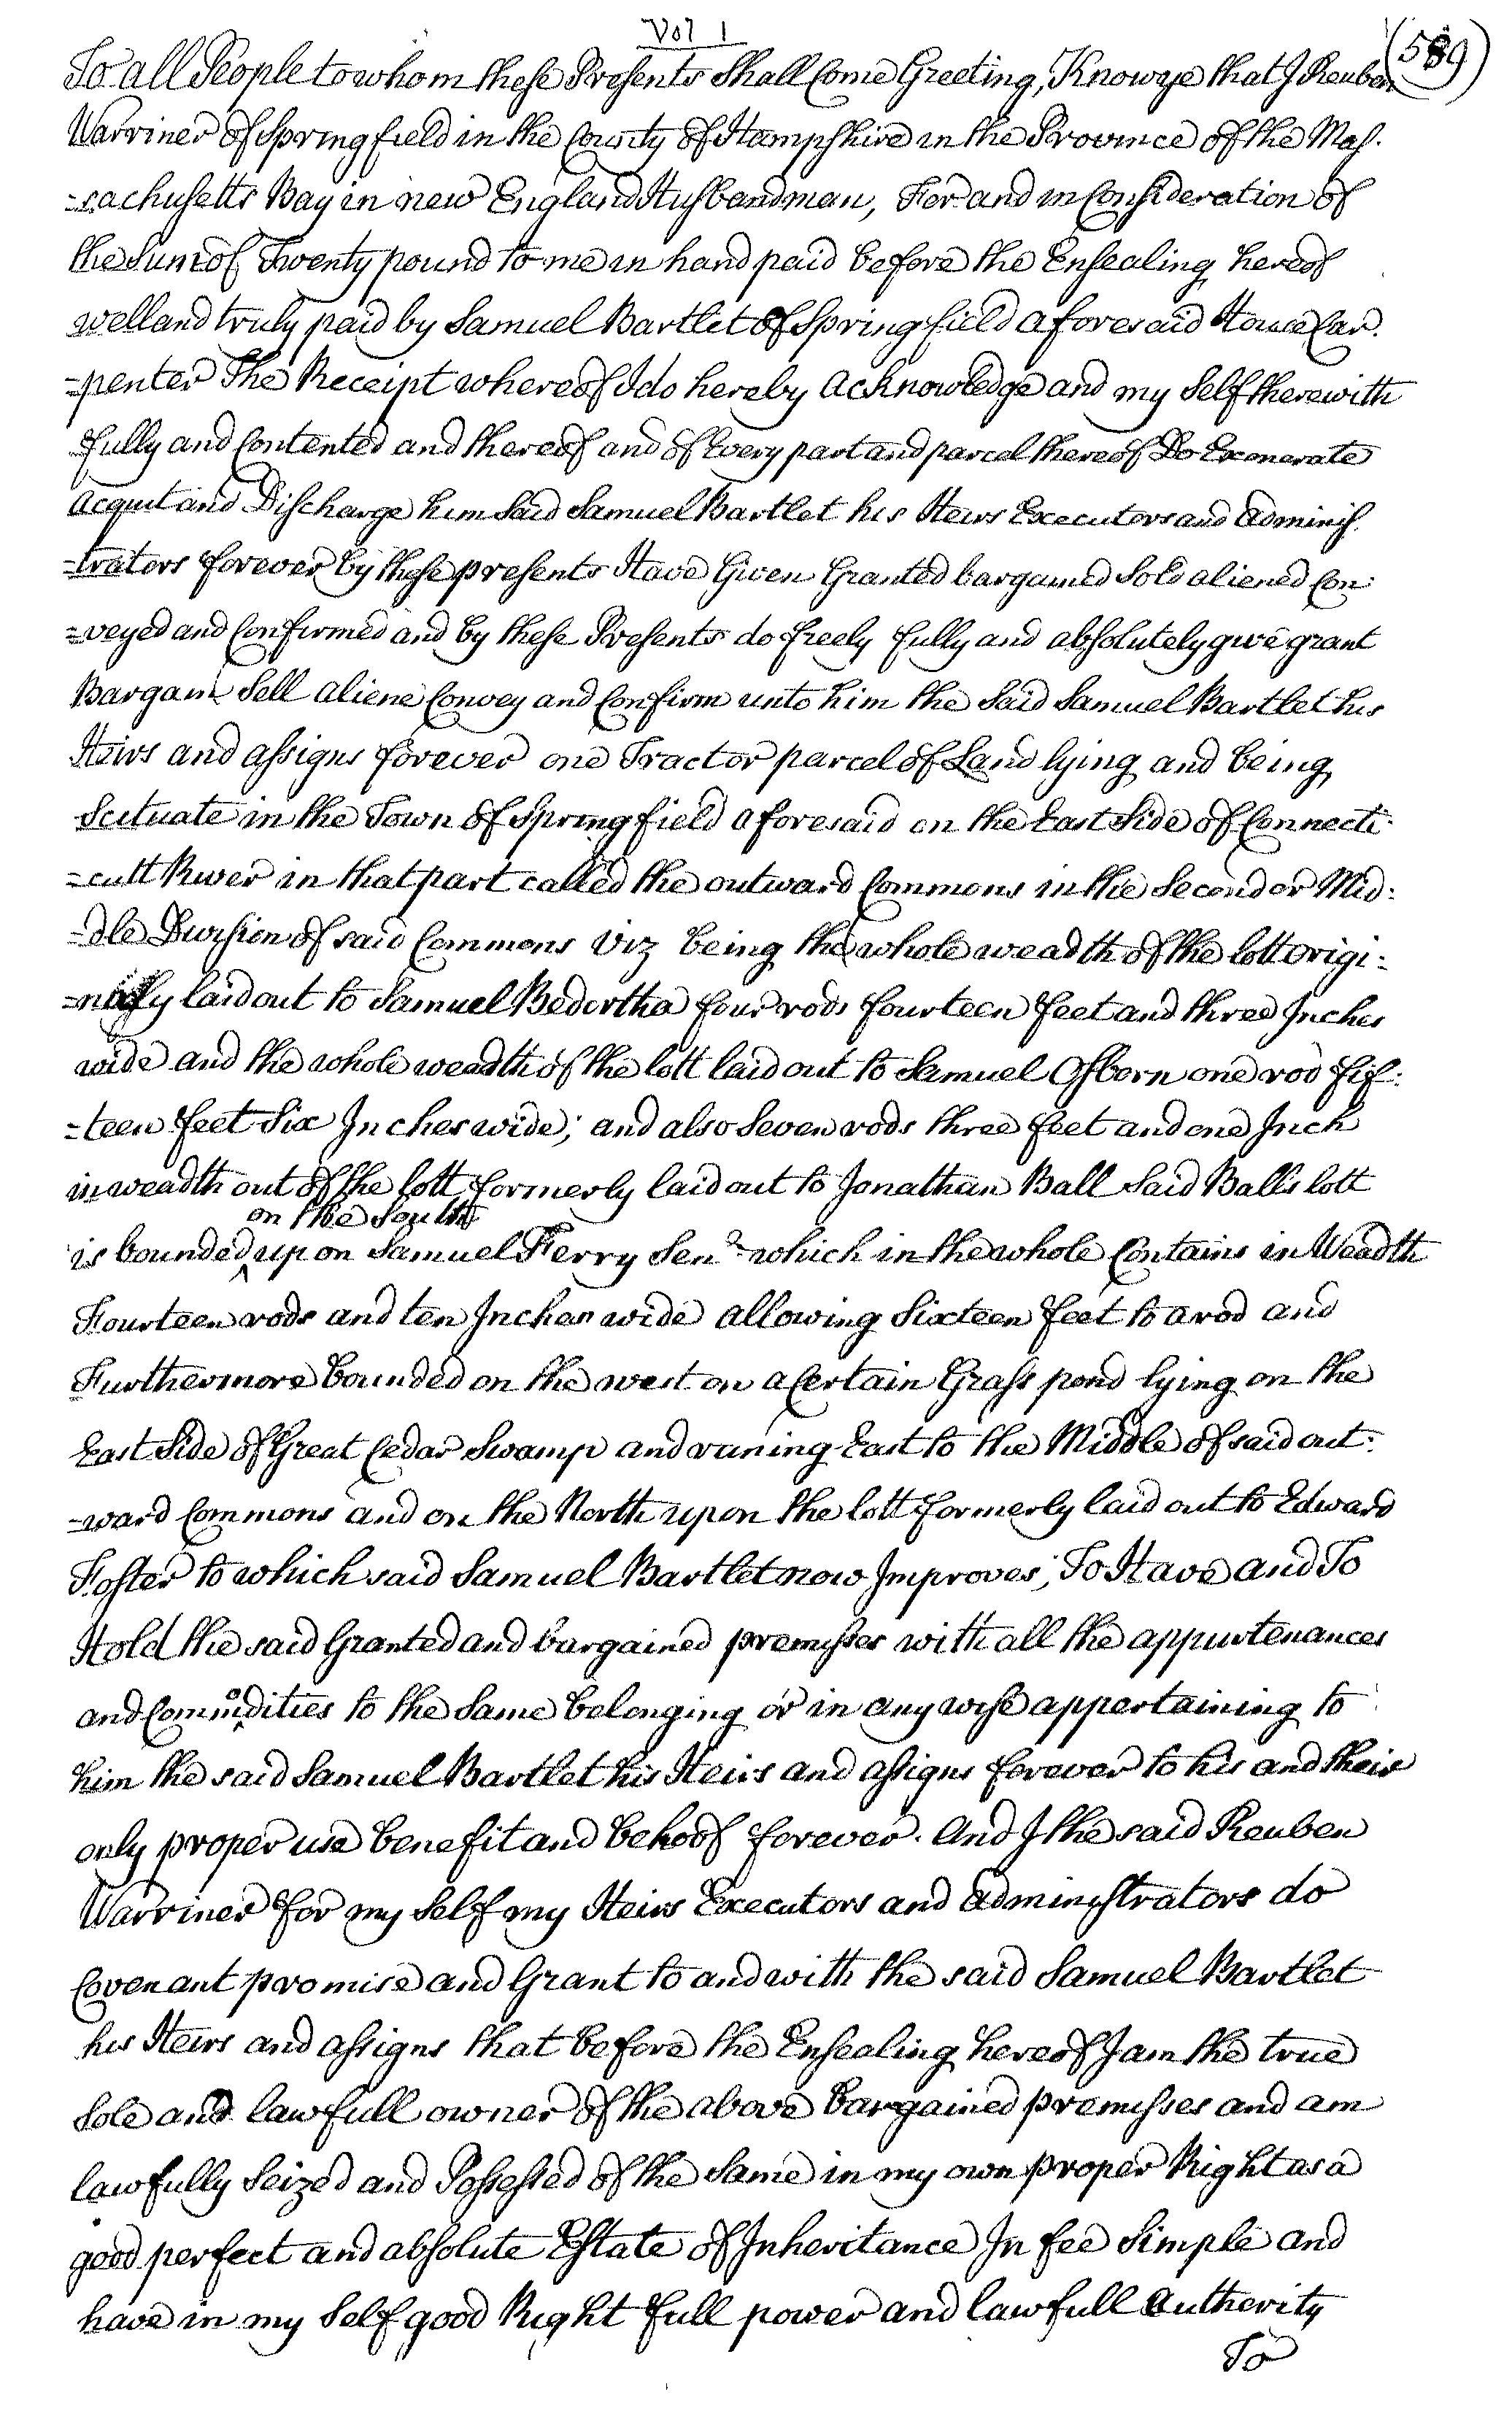 Vol 1
(589)
To all People to whom these Presents Shall Come Greeting, Know ye that I Reuben
Warriner of Springfield in the County of Hampshire in the Province of the Mas-
-sachusetts Bay in new England Husbandman, For and in Consideration of
the Sum of Twenty pound to me in hand paid before the Ensealing hereof
well and truly paid by Samuel Bartlet of Springfield aforesaid House Car-
-penter The Receipt whereof I do hereby acknowledge and my Self therewith
fully and Contented and thereof and of Every part and parcel thereof Do Exonerate
acquit and Discharge him Said Samuel Bartlet his Heirs Executors and adminis-
-trators forever by these presents Have Given Granted bargained Sold aliened Con:
=veyed and Confirmed and by these Presents do freely fully and absolutely give grant
Bargain Sell aliene Convey and Confirm unto him the Said Samuel Bartlet his
Heirs and assigns forever one Tract or parcel of Land lying and being
Scituate in the Town of Springfield aforesaid on the East Side of Connecti-
=cutt River in that part called the outward Commons in the Second or Mid:
-dle Division of said Commons viz being the whole weadth of the lott origi:
=nally laid out to Samuel Bedortha four rods fourteen feet and three Inches
wide and the whole weadth of the lott laid out to Samuel Osborn one rod fif:
=teen feet Six Inches wide; and also Seven rods three feet and one Inch
in weadth out of the lott formerly laid out to Jonathan Ball Said Balls lott
on the South
is bounded ^ upon Samuel Ferry Senr which in the whole Contains in Weadth
Fourteen rods and ten Inches wide allowing Sixteen feet to a rod and
Furthermore bounded on the west on a Certain Grass pond lying on the
East Side of Great Cedar Swamp and runing East to the Middle of said out:
-ward Commons and on the North upon the lott formerly laid out to Edward
Foster to which said Samuel Bartlet now Improves; To Have and To
Hold the said Granted and bargained premisses with all the appurtenances
and Commodities to the Same belonging or in any wise appertaining to
him the said Samuel Bartlet his Heirs and assigns forever to his and their
only proper use benefit and behoof forever. And I the said Reuben
Warriner for my Self my Heirs Executors and administrators do
Covenant promise and Grant to and with the said Samuel Bartlet
his Heirs and assigns that before the Ensealing hereof I am the true
Sole and lawfull owner of the above bargained premisses and am
lawfully Seized and Possessed of the Same in my own proper Right as a
good perfect and absolute Estate of Inheritance In fee Simple and
have in my Self good Right full power and lawfull Authority
To